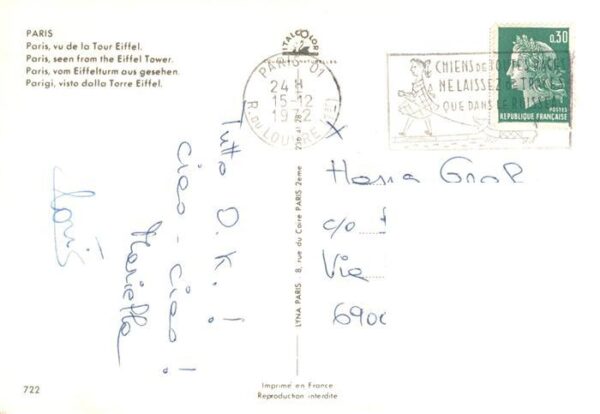 PARIS
Paris, vu de la Tour Eiffel.
Paris, seen from the Eiffel Tower.
Paris, vom Eiffelturm aus gesehen.
Parigi, visto dalla Torre Eiffel.
ITALCOLOR
PARIS 01
24 H
15-12
1972
R. DU LOUVRE (1ER)
CHIENS DE TOUTES RACES
NE LAISSEZ DE TRACES
QUE DANS LE RUISSEAU
0,30
POSTES
REPUBLIQUE FRANÇAISE
Tutto O.K.!
Ciao-Ciao!
Marietta
LYNA PARIS 8, rue du Caire PARIS 2eme
c/o
Via
6900
722
Imprimé en France
Reproduction interdite